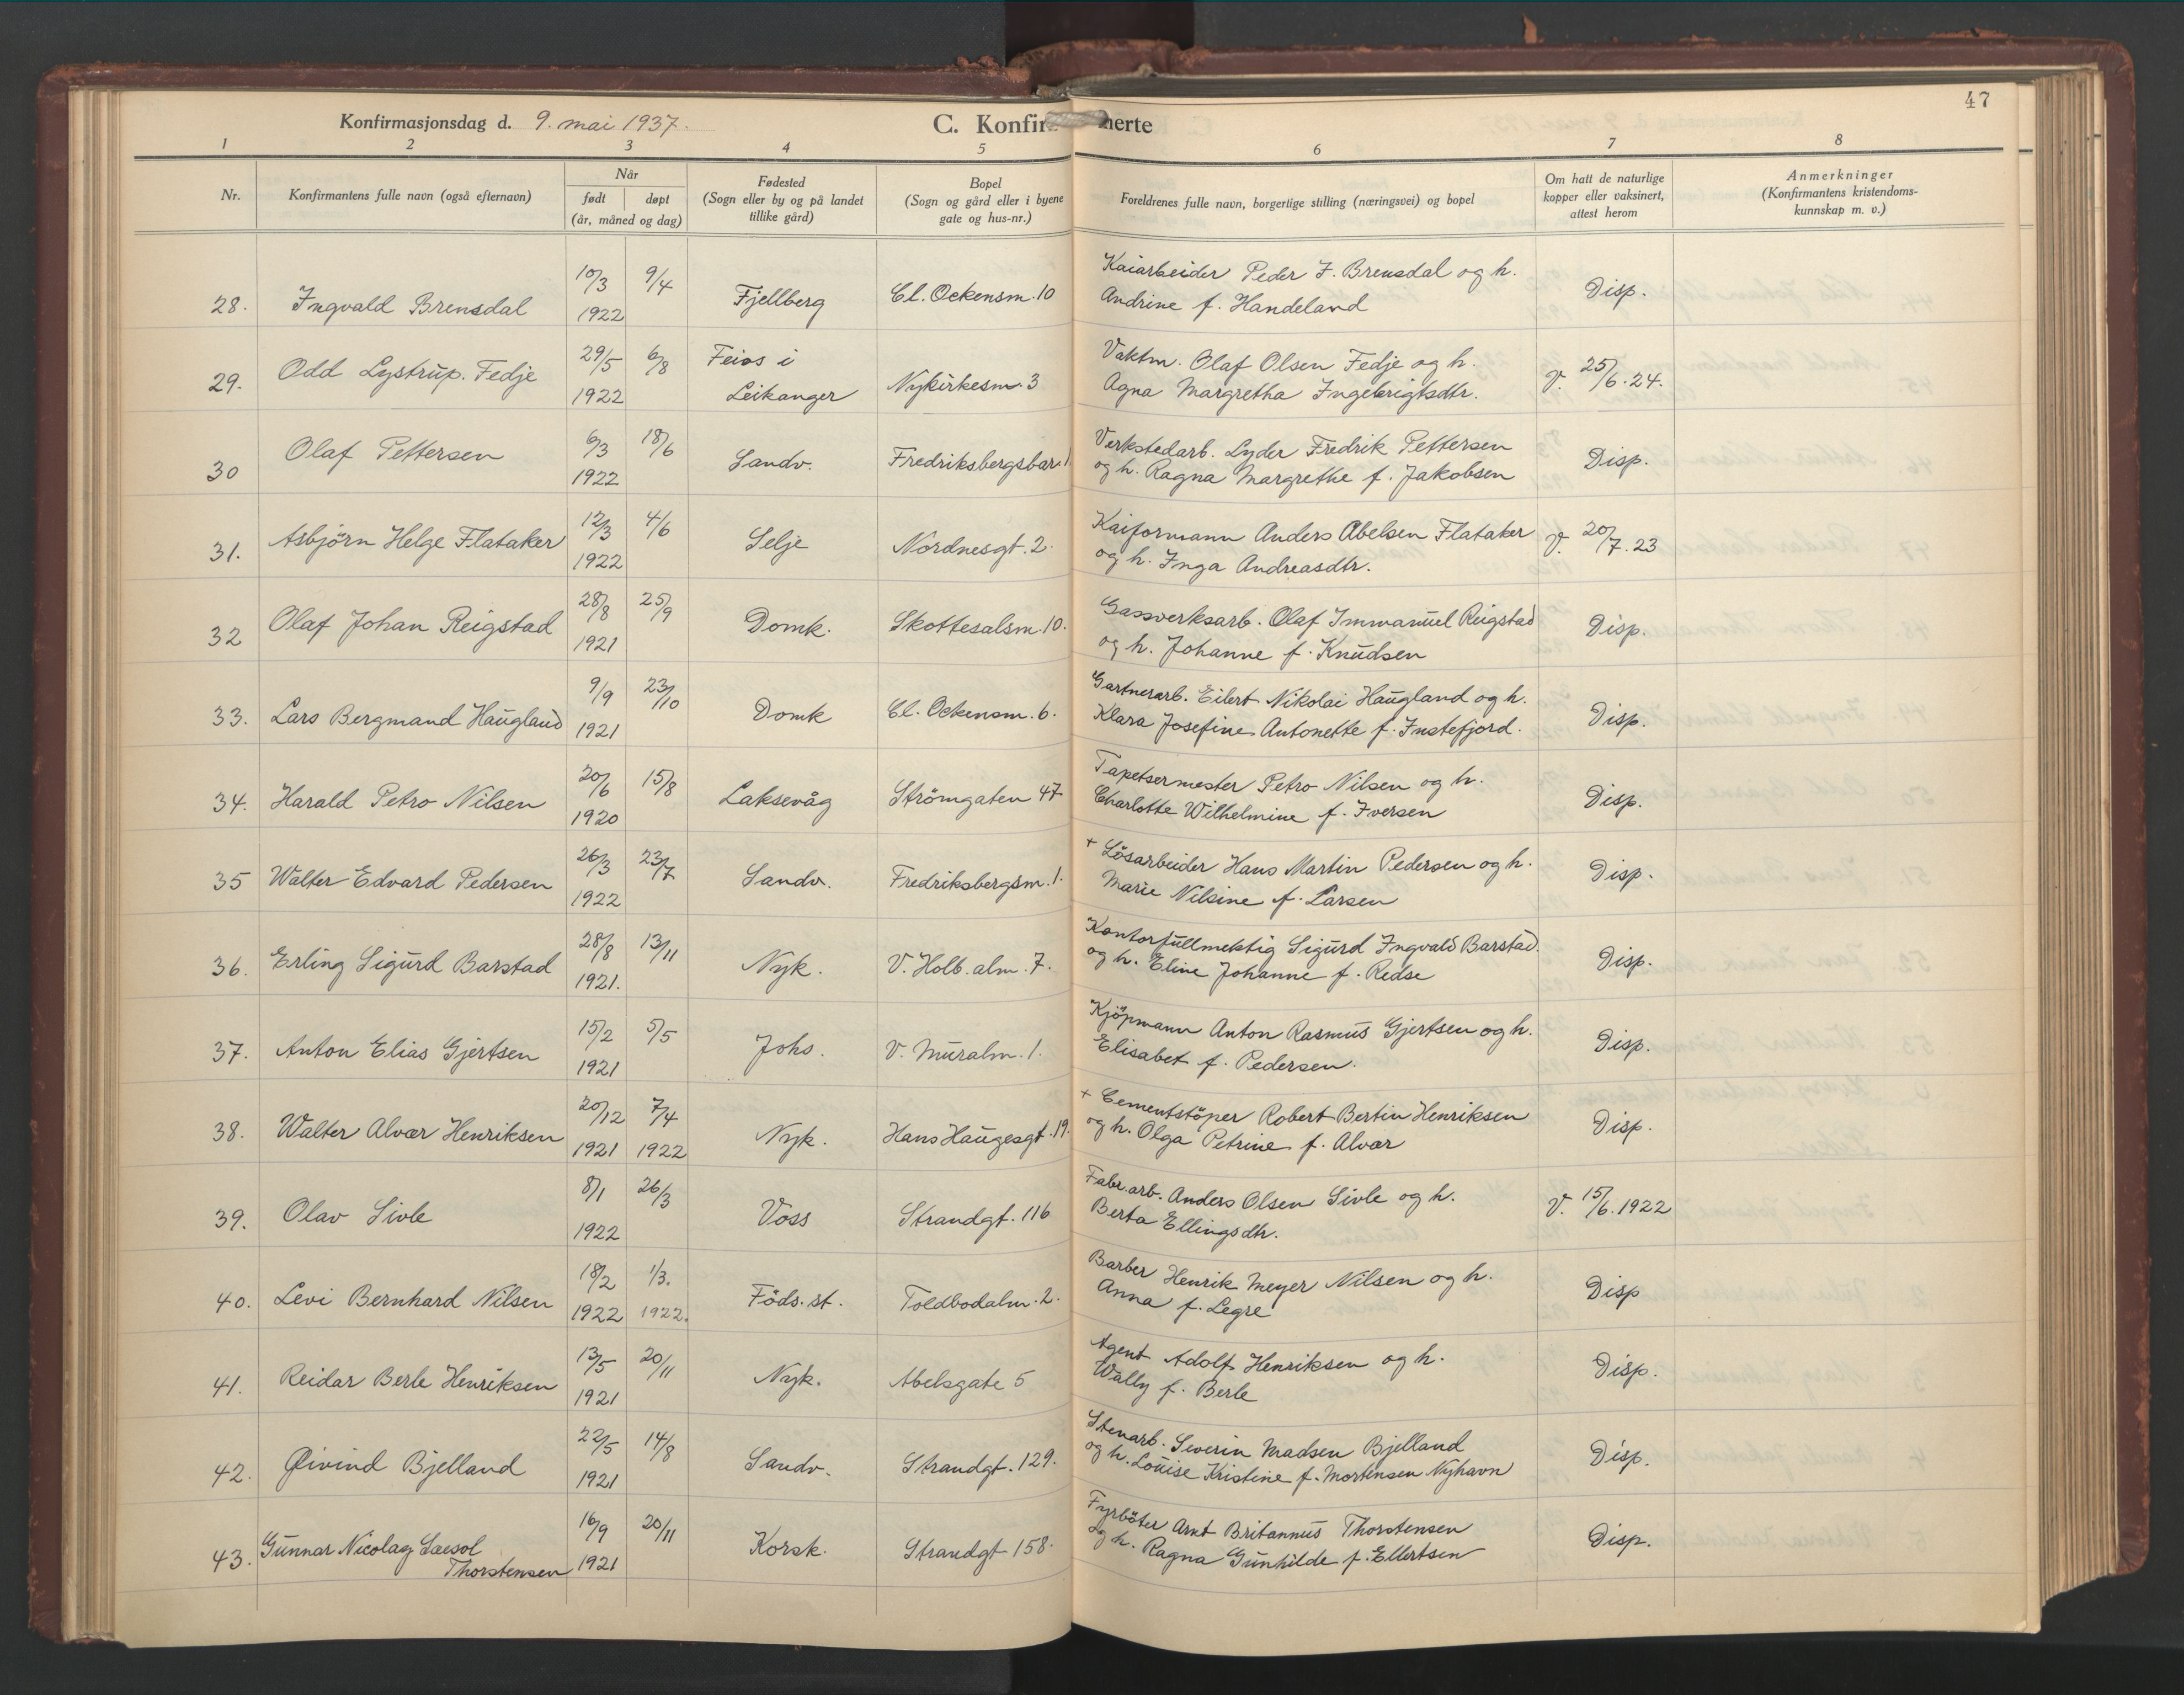 47
Konfirmasjonsdag d. 9. mai 1937.
C. Konfir merte
1 2 3 4 5 6 7 8
Nr.
Konfirmantens fulle navn (også efternavn)
Når
født døpt
(år, måned og dag)
Fødested
(Sogn eller by og på landet
tillike gård)
Bopel
(Sogn og gård eller i byene
gate og hus-nr.)
Foreldrenes fulle navn, borgerlige stilling (næringsvei) og bopel
Om hatt de naturlige
kopper eller vaksinert,
attest herom
Anmerkninger
(Konfirmantens kristendoms-
kunnskap m. v.)
28. Ingvald Brensdal 10/3 1922 9/4 Fjellberg Cl. Ockensm. 10 Kaiarbeider Peder J. Brensdal og h.
Andrine f. Handeland Disp.
29. Odd Lystrup. Fedje 29/5 1922 6/8 Feios i
Leikanger Nykirkesm. 3 Vaktm. Olaf Olsen Fedje og h.
Agna Margretha Ingebrigtsdtr. V. 25/6.24.
30 Olaf Pettersen 6/3 1922 18/6 Sandv. Fredriksbergsbar. 1 Verkstedarb. Lyder Fredrik Pettersen
og h. Ragna Margrethe f. Jakobsen Disp.
31. Asbjörn Helge Flataker 12/3 1922 4/6 Selje Nordnesgt. 2. Kaiformann Anders Abelsen Flataker
og h. Inga Andreasdtr. V. 20/7.23
32 Olaf Johan Reigstad 28/8 1921 25/9 Domk. Skottesalsm. 10. Gassverksarb. Olaf Immanuel Reigstad
og h. Johanne f. Knudsen Disp.
33. Lars Bergmand Haugland 9/9 1921 23/10 Domk Cl. Ockensm. 6. Gartnerarb. Eilert Nikolai Haugland og h.
Klara Josefine Antonette f. Instefjord. Disp.
34. Harald Petro Nilsen 20/6 1920 15/8 Laksevåg Strömgaten 47 Tapetsermester Petro Nilsen og h.
Charlotte Wilhelmine f. Iversen Disp.
35 Walter Edvard Pedersen 26/3 1922 23/7 Sandv. Fredriksbergsm. 1. + Lösarbeider Hans Martin Pedersen og h.
Marie Nilsine f. Larsen Disp.
36. Erling Sigurd Barstad 28/8 1921. 13/11 Nyk. V. Holb. alm. 7. Kontorfullmektig Sigurd Ingvald Barstad.
og h. Eline Johanne f. Redse Disp.
37. Anton Elias Gjertsen 15/2 1921 5/5 Johs. V. Muralm. 1. Kjöpmann Anton Rasmus Gjertsen og h.
Elisabet f. Pedersen. Disp.
38. Walter Alvær Henriksen 20/12 1921 7/4 1922 Nyk. Hans Haugesgt. 19. + Cementstöper Robert Bertin Henriksen
og h. Olga Petrine f. Alvær Disp.
39. Olav Sivle 8/1 1922 26/3 Voss Strandgt. 116 Fabr.arb. Anders Olsen Sivle og h.
Berta Ellingsdtr. V. 15/6.1922
40. Levi Bernhard Nilsen 18/2 1922 1/3. 1922. Föds. st. Toldbodalm. 2. Barber Henrik Meyer Nilsen og h.
Anna f. Legre Disp
41. Reidar Berle Henriksen 13/5 1921 20/11 Nyk. Abelsgate 5 Agent Adolf Henriksen og h.
Wally f. Berle Disp.
42. Øivind Bjelland 22/5 1921 14/8 Sandv. Strandgt. 129. Stenarb. Severin Madsen Bjelland
og h. Louise Kristine f. Mortensen Nyhavn Disp.
43. Gunnar Nicolay Saesol
Thorstensen 16/9 1921 20/11 Korsk. Strandgt 158. Fyrböter Arnt Britannus Thorstensen
og h. Ragna Gunhilde f. Ellertsen Disp.